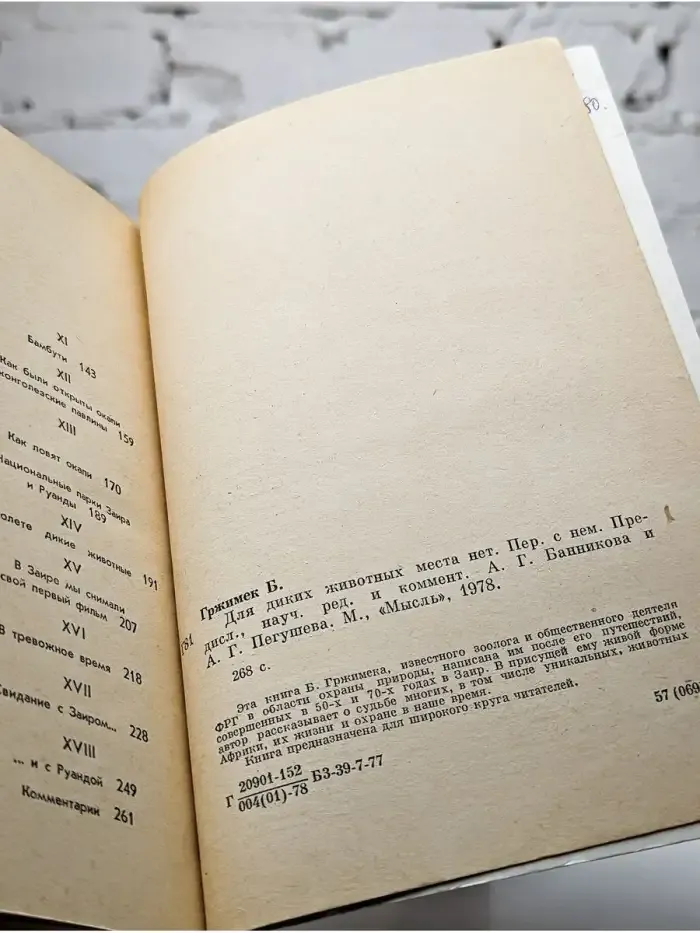 XI
Бамбути 143
XII
Как были открыты окапи
конголезские павлины 159
XIII
Как ловят окапи 170
Национальные парки Заира
и Руанды 189
XIV
дикие животные 191
XV
В Заире мы снимали
свой первый фильм 207
XVI
В тревожное время 218
XVII
Свидание с Заиром... 228
XVIII
... и с Руандой 249
Комментарии 261
80.
Гржимек Б.
Для диких животных места нет. Пер. с нем. Пре-
дисл., науч. ред. и коммент. А. Г. Банникова и
А. Г. Пегушева. М., «Мысль», 1978.
268 с.
Эта книга Б. Гржимека, известного зоолога и общественного деятеля
ФРГ в области охраны природы, написана им после его путешествий,
совершенных в 50-х и 70-х годах в Заир. В присущей ему живой форме
автор рассказывает о судьбе многих, в том числе уникальных, животных
Африки, их жизни и охране в наше время.
Книга предназначена для широкого круга читателей.
Г 20901-152 БЗ-39-7-77
004(01)-78
57 (069